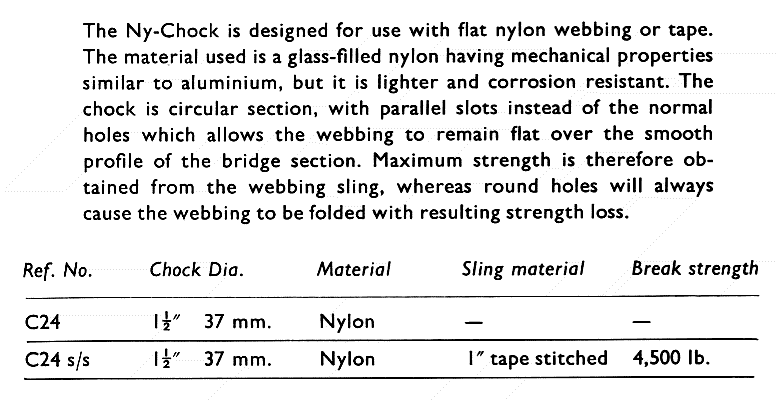 The Ny-Chock is designed for use with flat nylon webbing or tape.
The material used is a glass-filled nylon having mechanical properties
similar to aluminium, but it is lighter and corrosion resistant. The
chock is circular section, with parallel slots instead of the normal
holes which allows the webbing to remain flat over the smooth
profile of the bridge section. Maximum strength is therefore ob-
tained from the webbing sling, whereas round holes will always
cause the webbing to be folded with resulting strength loss.
Ref. No. Chock Dia. Material Sling material Break strength
C24 1½″ 37 mm. Nylon — —
C24 s/s 1½″ 37 mm. Nylon 1″ tape stitched 4,500 lb.